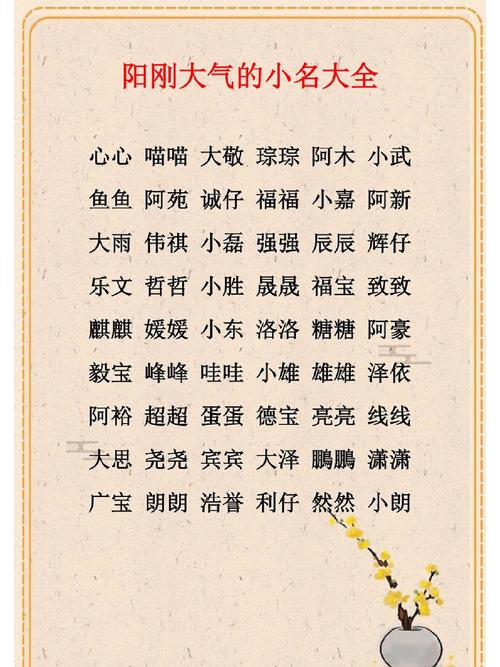 阳刚大气的小名大全
心心 喵喵 大敬 琮琮 阿木 小武
鱼鱼 阿苑 诚仔 福福 小嘉 阿新
大雨 伟祺 小磊 强强 辰辰 辉仔
乐文 哲哲 小胜 晟晟 福宝 致致
麒麒 媛媛 小东 洛洛 糖糖 阿豪
毅宝 峰峰 哇哇 小雄 雄雄 泽依
阿裕 超超 蛋蛋 德宝 亮亮 线线
大思 尧尧 宾宾 大泽 鹏鹏 潇潇
广宝 朗朗 浩誉 利仔 然然 小朗